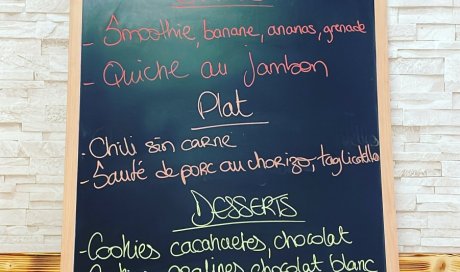 - Smoothie, banane, ananas, grenade
- Quiche au jambon
Plat
- Chili sin carne
- Sauté de porc au chorizo, tagliatelle
DESSERTS
- Cookies cacahuetes, chocolat
- Cookies pralines, chocolat blanc